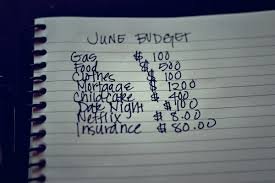 JUNE BUDGET
Gas $ 100
Food $ 500
Clothes $ 100
Mortgage $ 1200
Childcare $ 400
Date Night $ 100
Netflix $ 8.00
Insurance $ 80.00